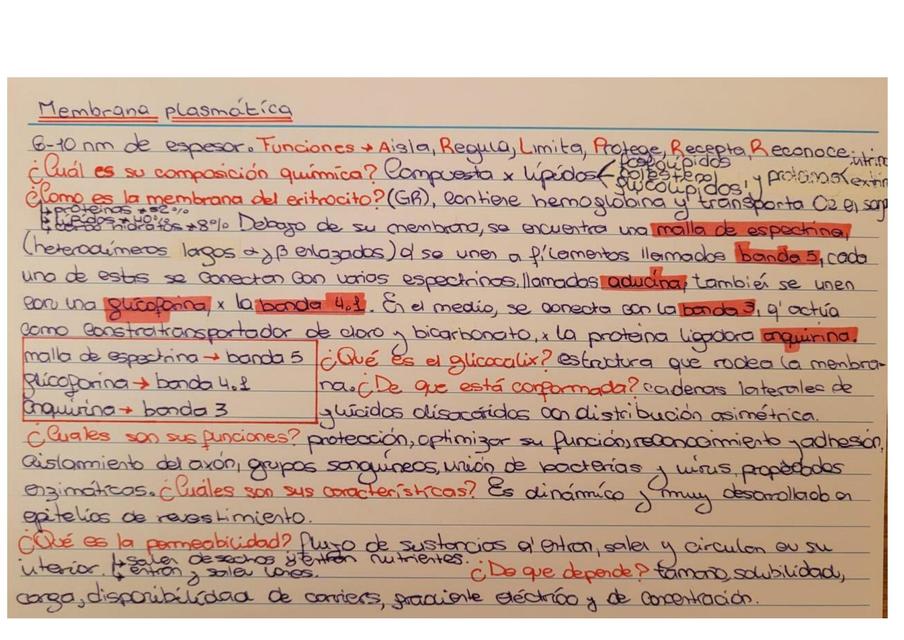 Membrana plasmática
6-10 nm de espesor. Funciones → Aisla, Regula, Limita, Protege, Recepta, Reconoce
¿Cuál es su composición química? Compuesta x lípidos < fosfolípidos colesterol glucolípidos, y proteínas <
¿Como es la membrana del eritrocito? (GR), contiene hemoglobina y transporta O2 en
↳ proteínas → 52%
↳ lípidos → 40%
hidratos → 8% Debajo de su membrana, se encuentra una malla de espectrina,
(heterodímeros largos α y β enlazados) q' se unen a filamentos llamados banda 5, cada
uno de estos se conectan con varias espectrinas, llamados aducina, también se unen
con una glicoforina, x la banda 4.1. En el medio, se conecta con la banda 3, q' actúa
como constratransportador de cloro y bicarbonato, x la proteína ligadora anquirina.
malla de espectrina → banda 5
glicoforina → banda 4.1
anquirina → banda 3
¿Qué es el glicocalix? estructura que rodea la membra-
na. ¿De que está conformada? cadenas laterales de
glúcidos disacáridos con distribución asimétrica.
¿Cuales son sus funciones? protección, optimizar su función, reconocimiento y adhesión,
aislamiento del axón, grupos sanguíneos, unión de bacterias y virus, propiedades
enzimáticas. ¿Cuáles son sus características? Es dinámico y muy desarrollado en
epitelios de revestimiento.
¿Qué es la permeabilidad? flujo de sustancias q' entran, salen y circulan en su
interior. ↳ salen desechos y entran nutrientes.
↳ entran y salen iones.
¿De que depende? tamaño, solubilidad,
carga, disponibilidad de carriers, gradiente eléctrico y de concentración.